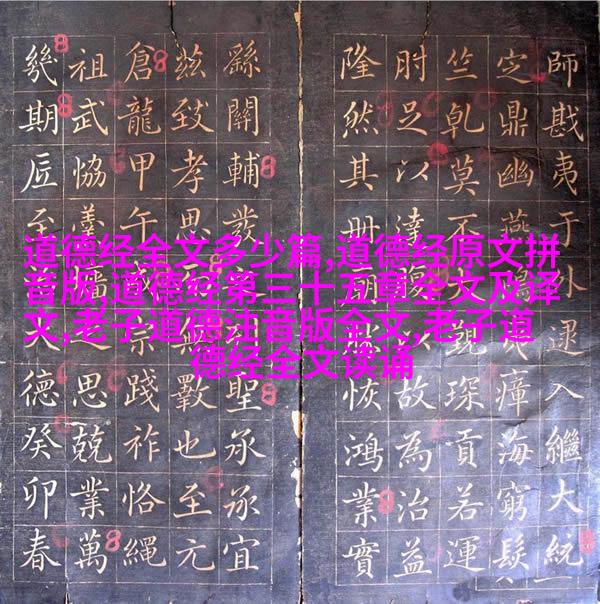 道德经全文多少篇,道德经原文拼
音版,道德经第三十五章全文及译
文,老子道德注音版全文,老子道
德经全文读诵
師戡夷于外逮入繼大統
定鼎幽燕瘴海窮髮
竺乹莫不覲琛貢若運
肘足以達腹以故為治益
隆然其冊恢鴻業實
繇關輔發聖承承宜
茲致孝思無斁也至元
倉龍甲午宗踐祚恪繩
祖武恊羹墻之思兢業萬
幾期匠至德癸卯春